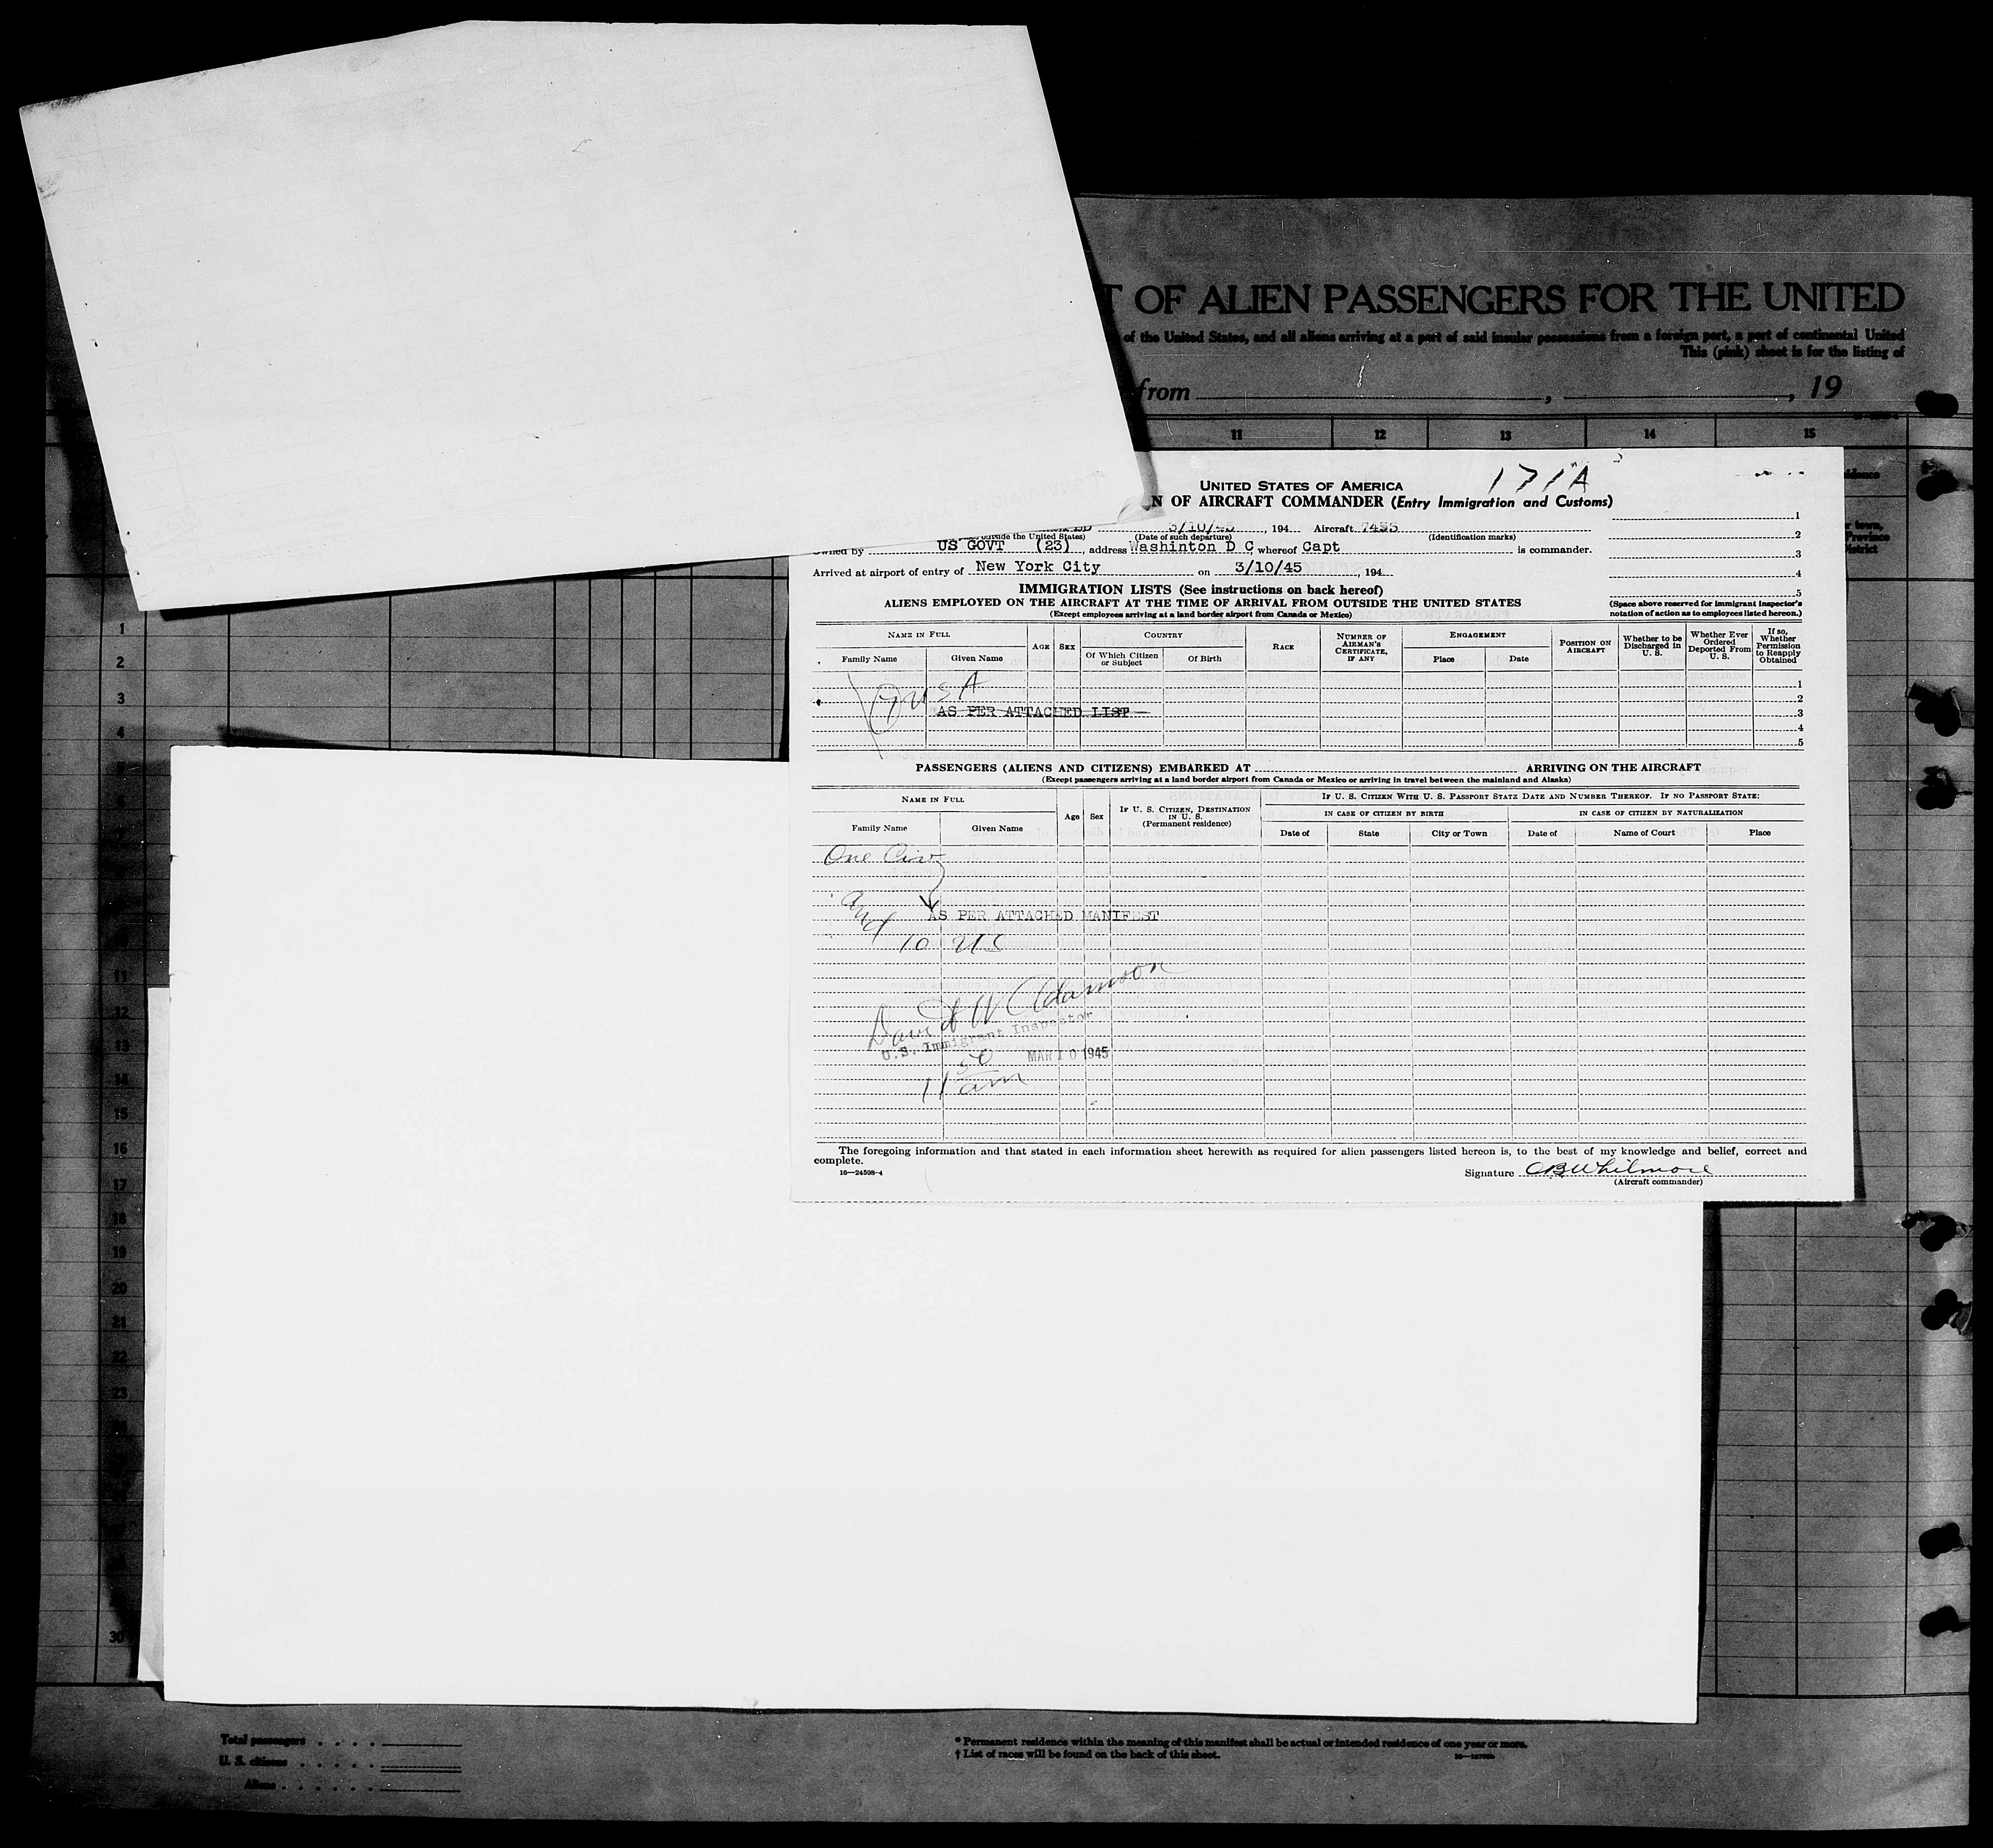 T OF ALIEN PASSENGERS FOR THE UNITED
of the United States, and all aliens arriving at a port of said insular possessions from a foreign port, a port of continental United
This (pink) sheet is for the listing of
from , , 19
11 12 13 14 15
171A
UNITED STATES OF AMERICA
N OF AIRCRAFT COMMANDER (Entry Immigration and Customs)
3/10/45, 194 Aircraft
outside the United States) (Date of such departure) (Identification marks)
Owned by US GOVT (23), address Washinton D C whereof Capt is commander.
Arrived at airport of entry of New York City on 3/10/45, 194
1
2
3
4
5
(Space above reserved for immigrant inspector's notation of action as to employees listed hereon.)
IMMIGRATION LISTS (See instructions on back hereof)
ALIENS EMPLOYED ON THE AIRCRAFT AT THE TIME OF ARRIVAL FROM OUTSIDE THE UNITED STATES
(Except employees arriving at a land border airport from Canada or Mexico)
NAME IN FULL AGE SEX COUNTRY RACE NUMBER OF AIRMAN'S CERTIFICATE, IF ANY ENGAGEMENT POSITION ON AIRCRAFT Whether to be Discharged in U. S. Whether Ever Ordered Deported From U. S. If so, Whether Permission to Reapply Obtained
Family Name Given Name Of Which Citizen or Subject Of Birth Place Date
USA
AS PER ATTACHED LIST
1
2
3
4
5
PASSENGERS (ALIENS AND CITIZENS) EMBARKED AT ARRIVING ON THE AIRCRAFT
(Except passengers arriving at a land border airport from Canada or Mexico or arriving in travel between the mainland and Alaska)
NAME IN FULL Age Sex IF U. S. CITIZEN, DESTINATION IN U. S. (Permanent residence) IF U. S. CITIZEN WITH U. S. PASSPORT STATE DATE AND NUMBER THEREOF. IF NO PASSPORT STATE:
IN CASE OF CITIZEN BY BIRTH IN CASE OF CITIZEN BY NATURALIZATION
Family Name Given Name Date of State City or Town Date of Name of Court Place
One Civ
AS PER ATTACHED MANIFEST
10 US
David W Adamson
U.S. Immigrant Inspector
MAR 10 1945
11 50 am
The foregoing information and that stated in each information sheet herewith as required for alien passengers listed hereon is, to the best of my knowledge and belief, correct and
complete.
16—24598-4
Signature CB Whitmore
(Aircraft commander)
1
2
3
4
11
12
13
14
15
16
17
18
19
20
21
22
23
30
Total passengers
U. S. citizens
Aliens
* Permanent residence within the meaning of this manifest shall be actual or intended residence of one year or more.
† List of races will be found on the back of this sheet.